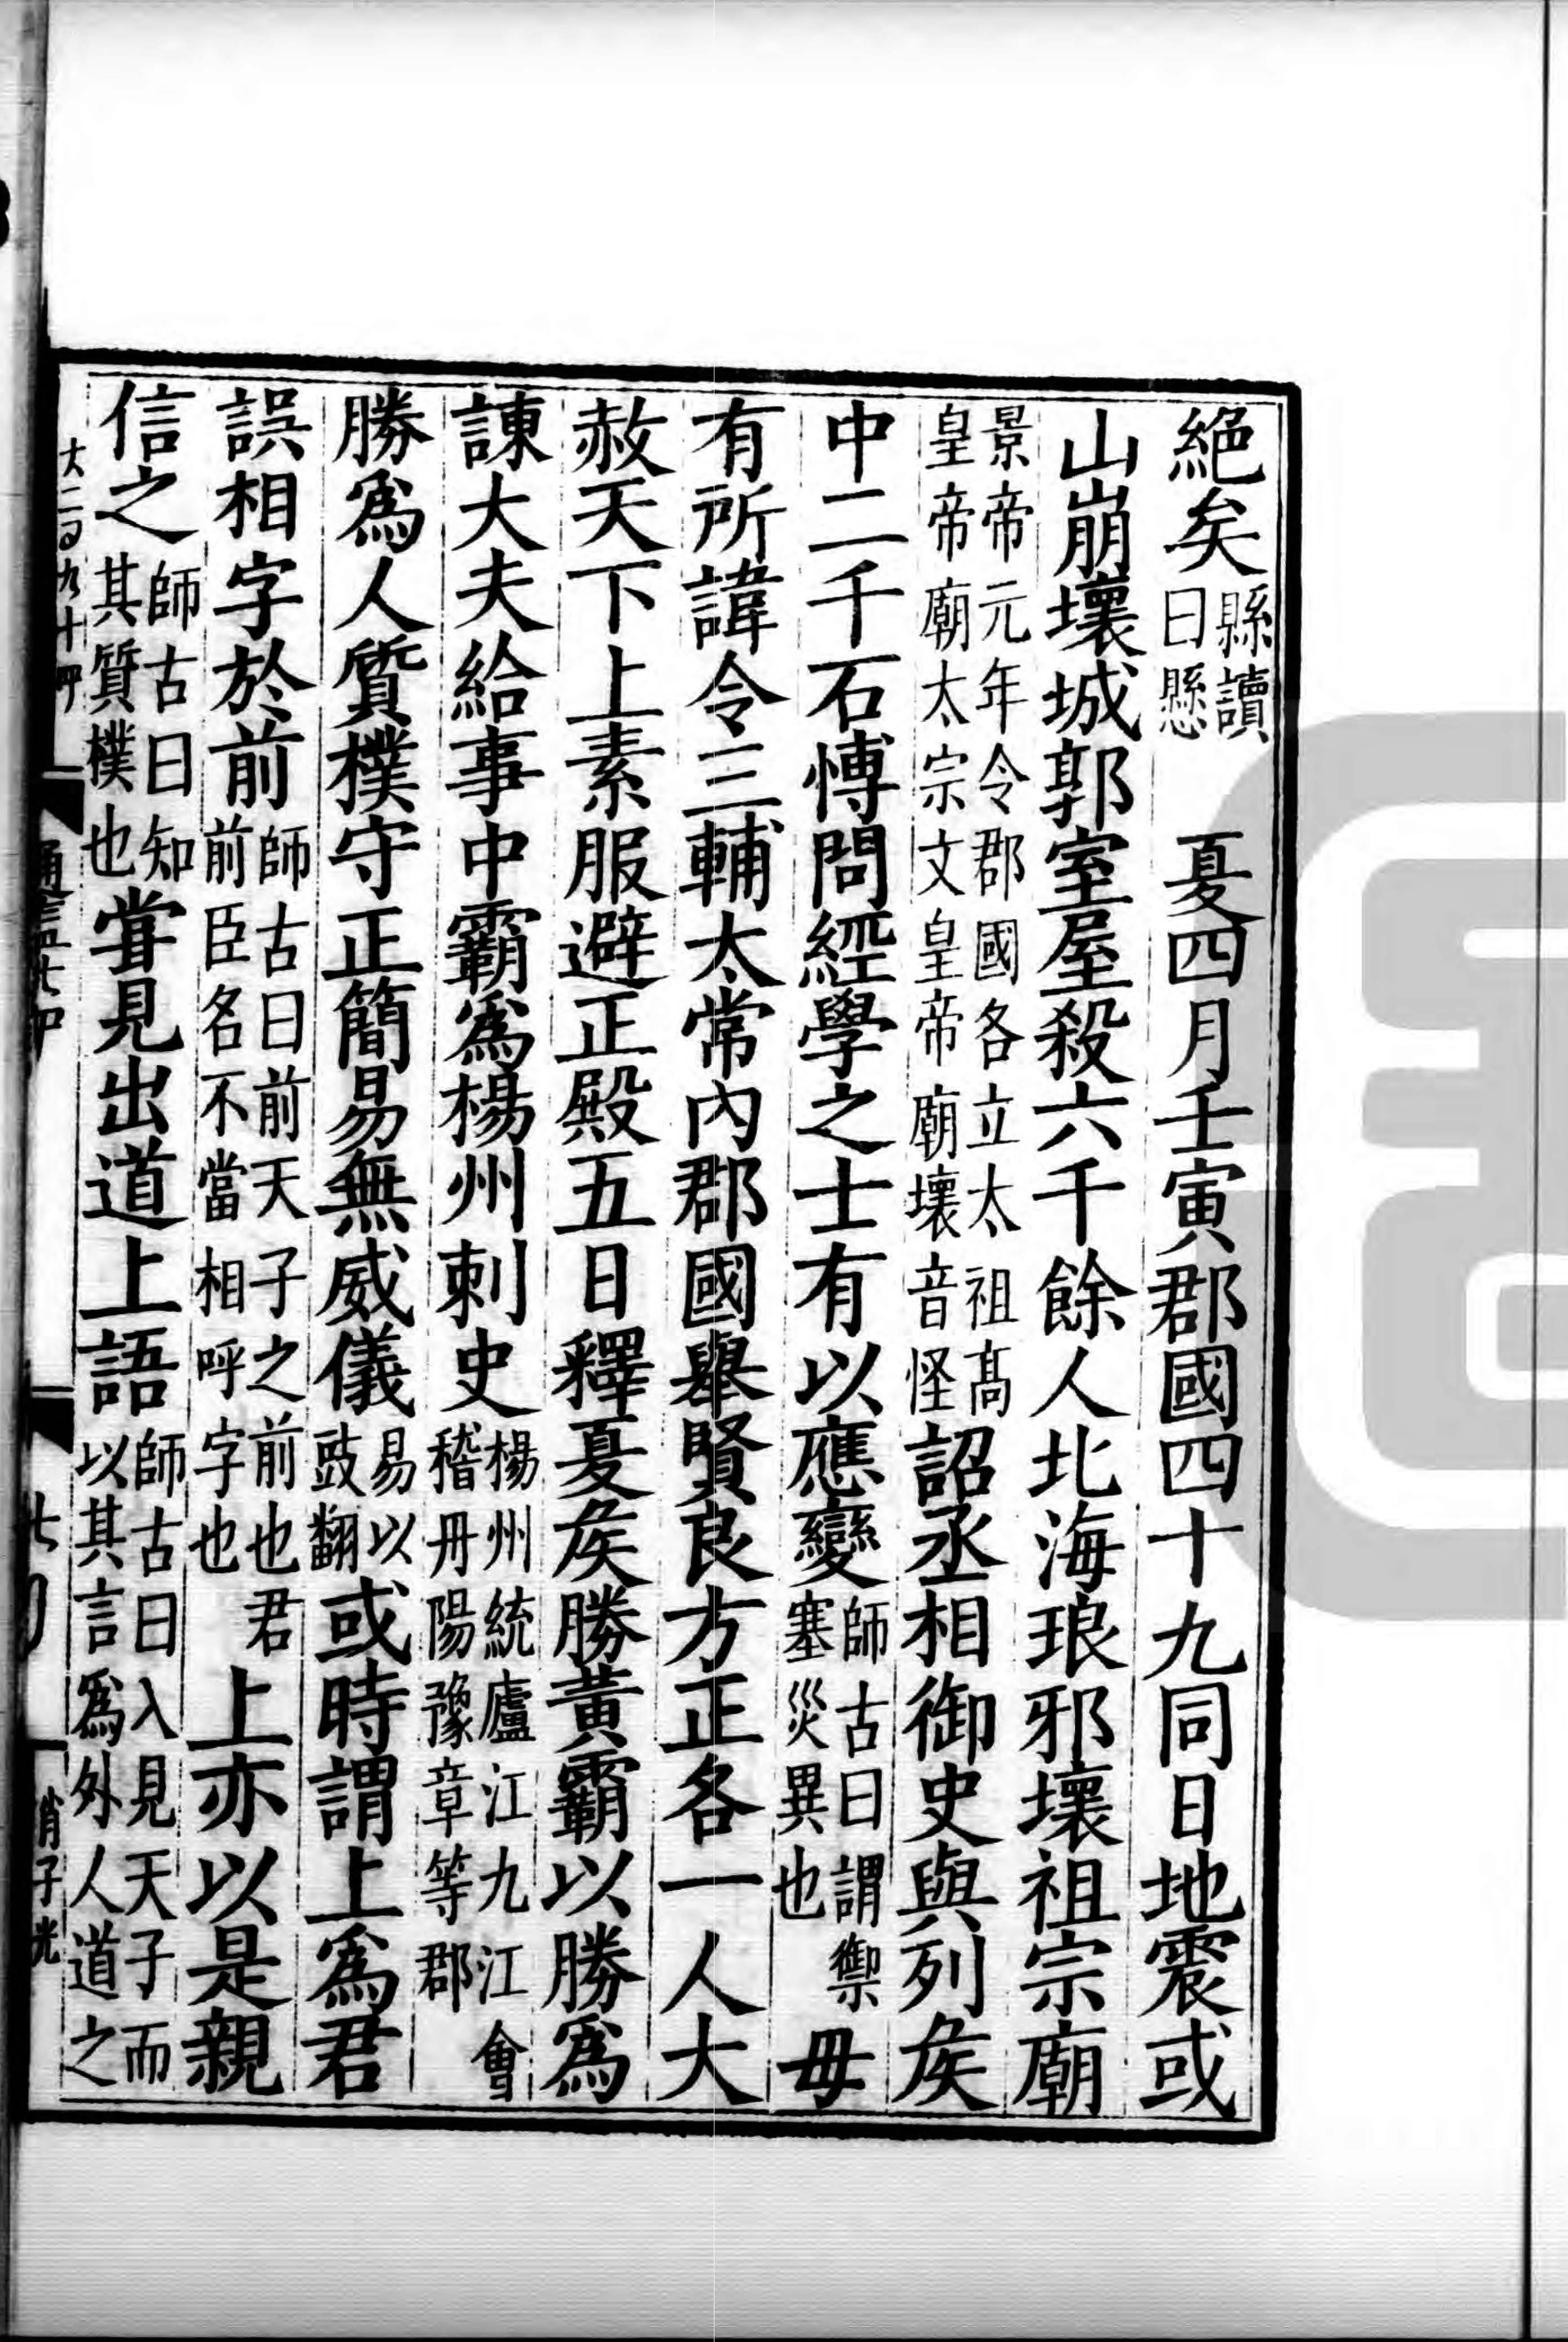 絶矣縣讀曰懸　夏四月壬寅郡國四十九同日地震或
山崩壞城郭室屋殺六千餘人北海琅邪壞祖宗廟
景帝元年令郡國各立太祖髙皇帝廟太宗文皇帝廟壞音怪詔丞相御史與列矦
中二千石愽問經學之士有以應變師古曰謂禦塞災異也毋
有所諱令三輔太常內郡國舉賢良方正各一人大
赦天下上素服避正殿五日釋夏矦勝黃霸以勝爲
諫大夫給事中霸爲楊州刺史楊州統廬江九江會稽丹陽豫章等郡
勝爲人質樸守正簡易無威儀易以豉翻或時謂上爲君
誤相字於前師古曰前天子之前也君前臣名不當相呼字也上亦以是親
信之師古曰知其質樸也甞見出道上語師古曰入見天子而以其言爲外人道之